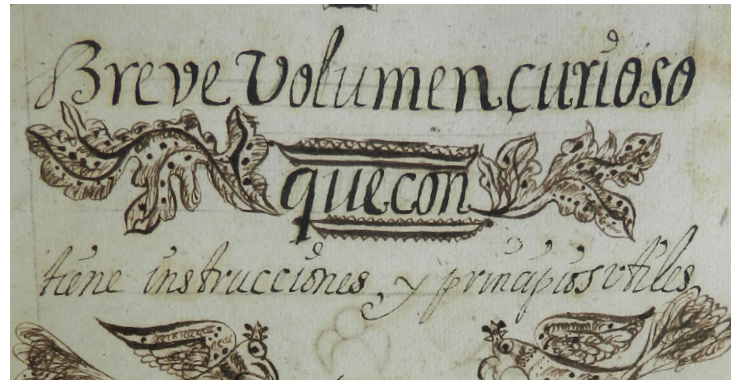 Breve Volumen çurioso
que con
tiene instrucciones, y principios vtiles,